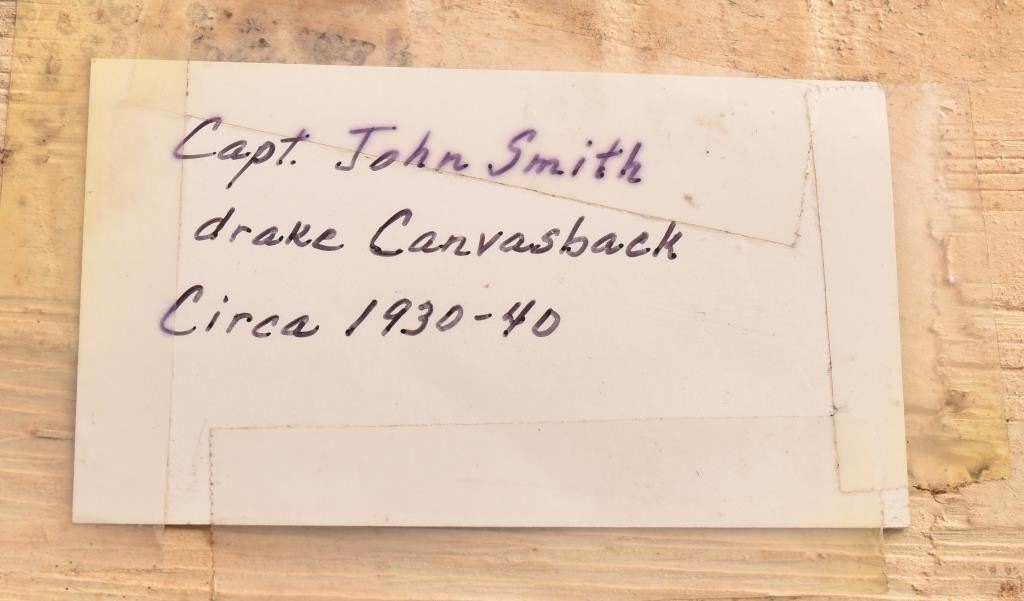 Capt. John Smith
drake Canvasback
Circa 1930-40